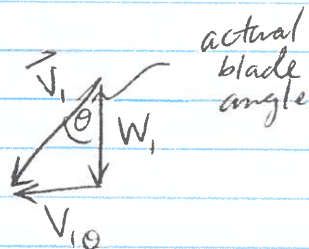 actual
blade
angle
V₁
θ
W₁
V₁θ